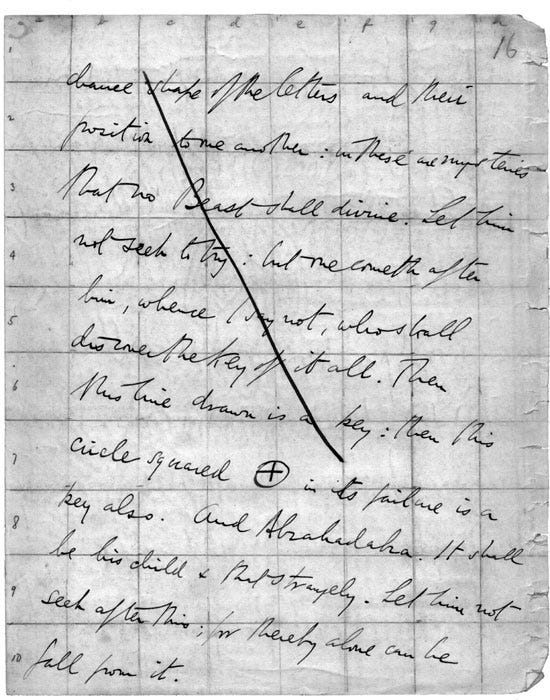 a b c d e f g h
16
1
chance shape of the letters and their
2
position to one another: in these are mysteries
3
that no Beast shall divine. Let him
4
not seek to try: but one cometh after
5
him, whence I say not, who shall
discover the Key of it all. Then
6
this line drawn is a key: then this
7
circle squared ⊕ in its failure is a
key also. And Abrahadabra. It shall
8
be his child & that strangely. Let him not
9
seek after this; for thereby alone can he
10
fall from it.